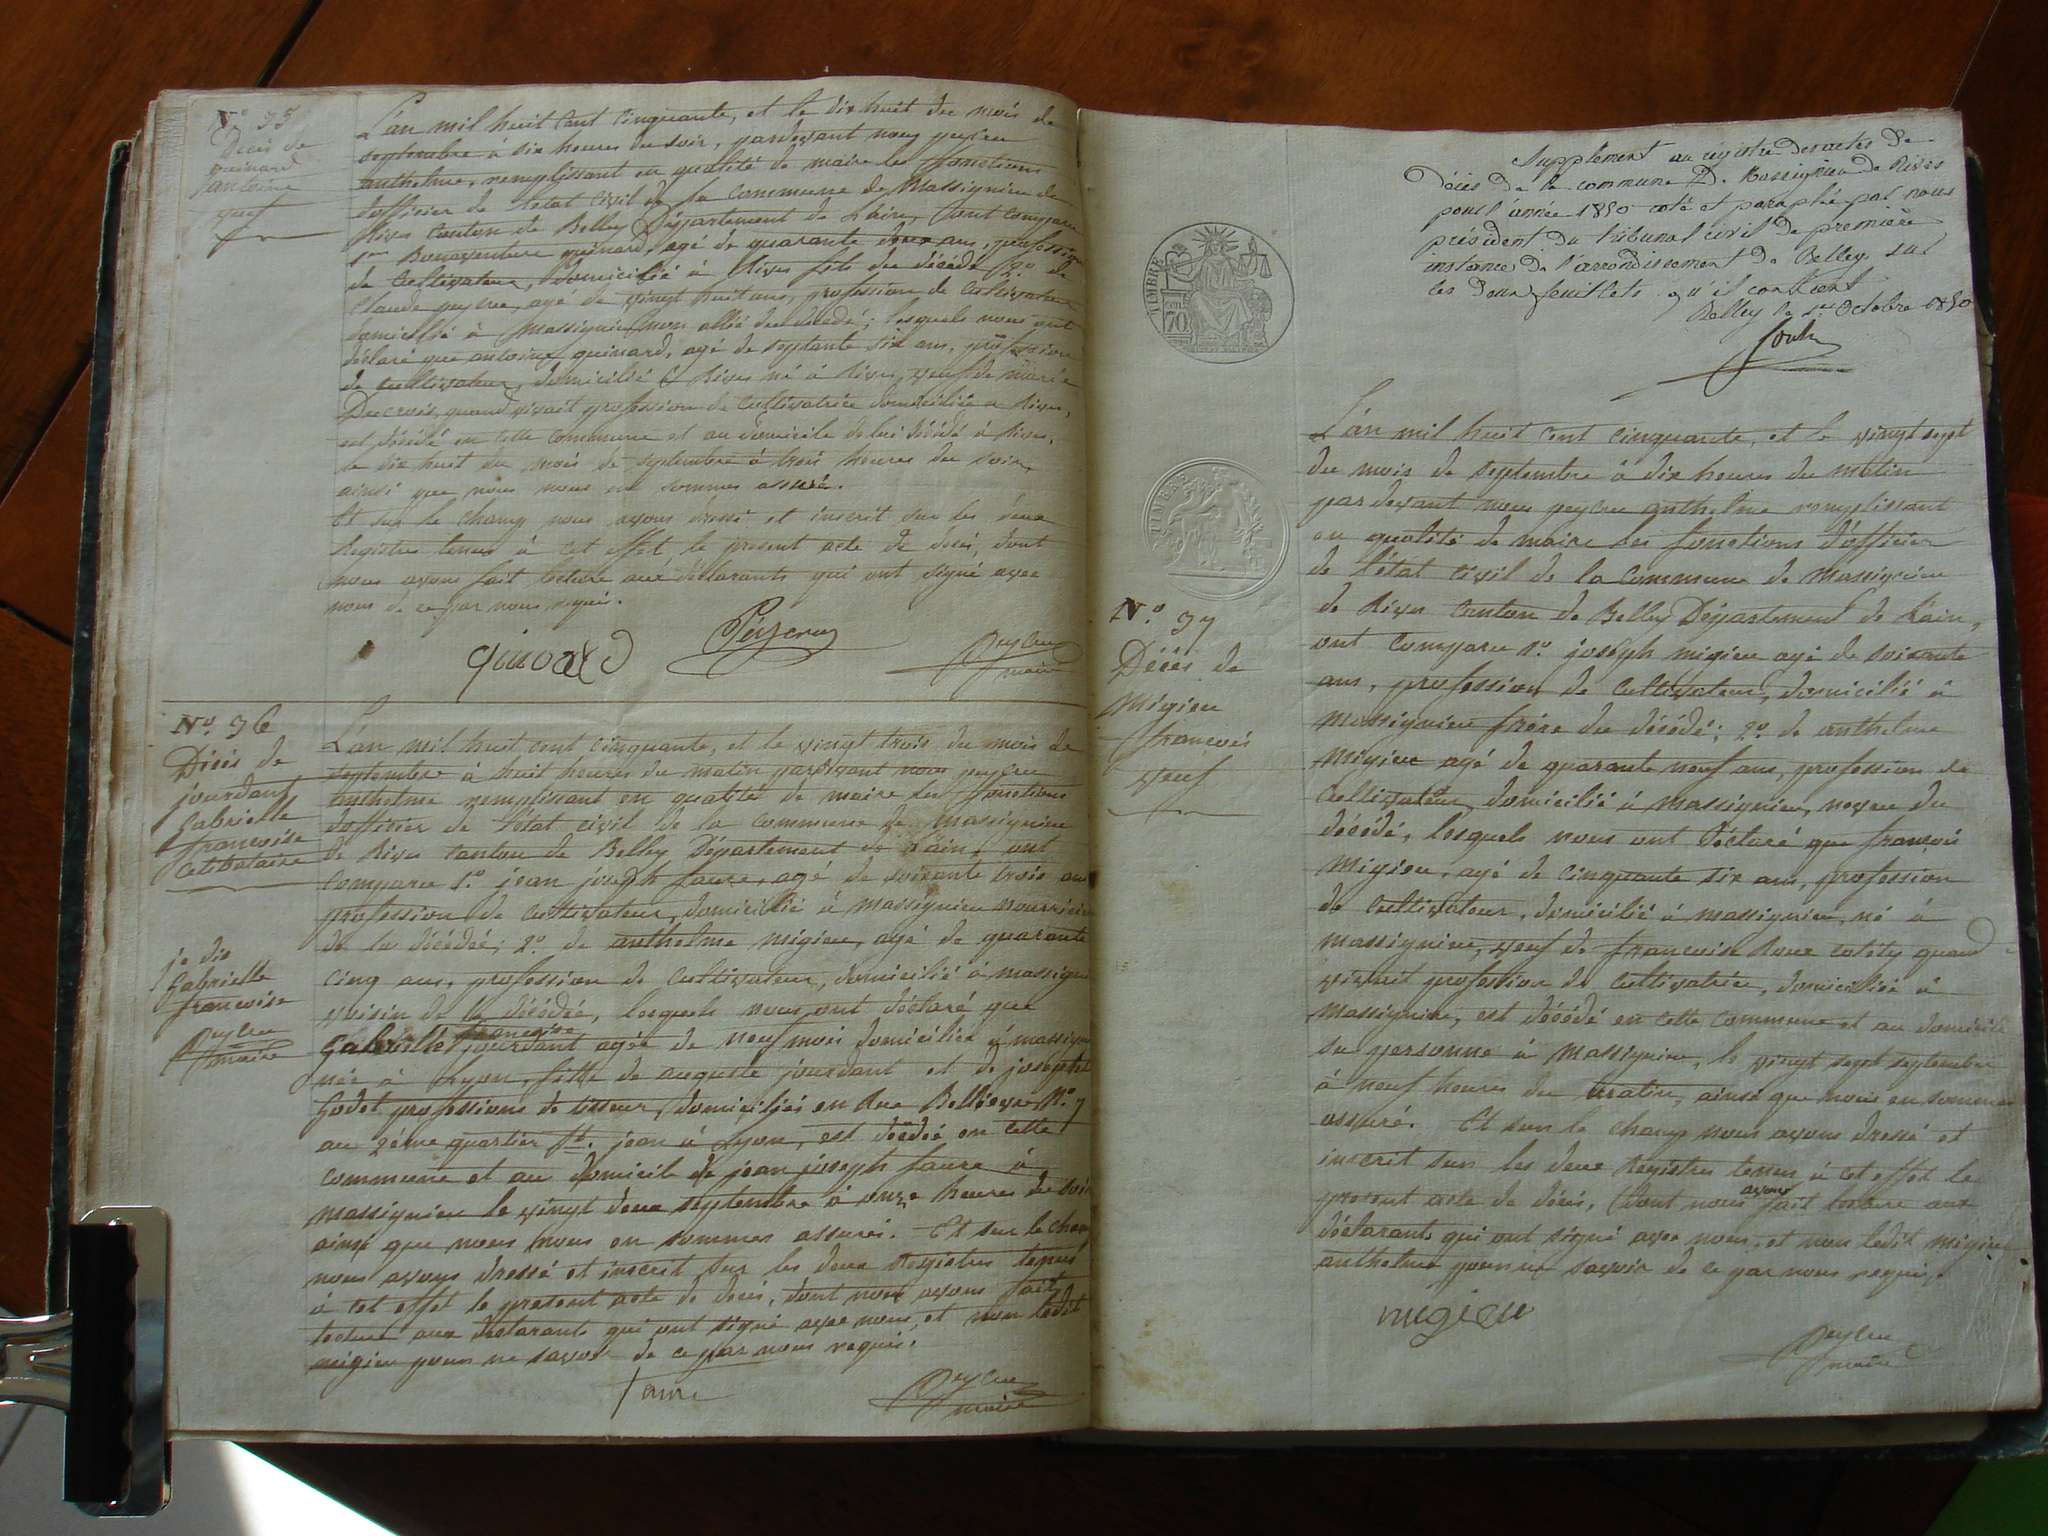 N.º 35
Décès de
guinard
antoine
veuf
L'an mil huit cent cinquante, et le dix huit du mois de
septembre à six heures du soir, pardevant nous peyzeu
anthelme, remplissant en qualité de maire les fonctions
d'officier de l'état civil de la commune de Massignieu de
Rives canton de Belley Département de l'ain, sont comparu
1.º Bonaventure guinard, agé de quarante deux ans, profession
de cultivateur, domicilié à Rives fils du décédé 2.º de
Claude, agé de vingt huit ans, profession de cultivateur
domicilié à Massignieu non allié du décédé; lesquels nous ont
déclaré que antoine guinard, agé de septante six ans, profession
de cultivateur, domicilié à Rives né à Rives, veuf de marie
Ducrois, quand vivait profession de cultivatrice domiciliée à Rives,
est décédé en cette commune et au domicile de lui décédé à Rives,
le dix huit du mois de septembre à trois heures du soir,
ainsi que nous nous en sommes assuré.
Et sur le champ nous avons dressé et inscrit sur les deux
Registres tenus à cet effet le present acte de décès, dont
nous avons fait lecture aux déclarants qui ont signé avec
nous de ce par nous requis.
guinard
maire
N.º 36
Décès de
jourdant
Gabrielle
francoise
Celibataire
je dis
Gabrielle
francoise
maire
L'an mil huit cent cinquante, et le vingt trois du mois de
septembre à huit heures du matin pardevant nous peyzeu
anthelme remplissant en qualité de maire les fonctions
d'officier de l'état civil de la commune de Massignieu
de Rives canton de Belley Département de l'ain, ont
comparu 1.º jean joseph faure, agé de soixante trois ans
profession de cultivateur, domicilié à Massignieu nourricier
de la décédée; 2.º de anthelme migieu, agé de quarante
cinq ans, profession de cultivateur, domicilié à massignieu
voisin de la décédée, lesquels nous ont déclaré que
francoise
Gabrielle jourdant agée de neuf mois domiciliée à massignieu
née à Lyon, fille de auguste jourdant et de josephte
Godet professions de tisseur, domiciliés en Rue Bellievre N.º 7
au 2éme quartier St. jean à Lyon, est décédée en cette
commune et au domicile de jean joseph faure à
massignieu le vingt deux septembre à onze heures du soir
ainsi que nous nous en sommes assuré. Et sur le champ
nous avons dressé et inscrit sur les deux Registres tenus
à cet effet le present acte de décès, dont nous avons fait
lecture aux déclarants qui ont signé avec nous, et non ledit
migieu pour ne savoir de ce par nous requis.
faure
maire
Supplément au registre des actes de
Décès de la commune De Massignieu de Rives
pour l'année 1850 coté et paraphé par nous
président du tribunal civil de première
instance de l'arrondissement de Belley sur
les deux feuillets qu'il contient
Belley le 1er Octobre 1850
TIMBRE
70
TIMBRE
N.º 37
Décès de
Migieu
françois
veuf
L'an mil huit cent cinquante, et le vingt sept
du mois de septembre à dix heures du matin
par devant nous peyzeu anthelme remplissant
en qualité de maire les fonctions d'officier
de l'état civil de la commune de Massignieu
de Rives canton de Belley Département de l'ain,
ont comparu 1.º joseph migieu agé de soixante
ans, profession de cultivateur, domicilié à
Massignieu frère du décédé; 2.º de anthelme
Migieu agé de quarante neuf ans, profession de
cultivateur, domicilié à Massignieu, neveu du
décédé, lesquels nous ont déclaré que françois
Migieu, agé de cinquante six ans, profession
de cultivateur, domicilié à Massignieu, né à
massignieu, veuf de francoise quand
vivait profession de cultivatrice, domiciliée à
Massignieu, est décédé en cette commune et au domicile
sa personne à Massignieu, le vingt sept septembre
à neuf heures du matin, ainsi que nous en sommes
assuré. Et sur le champ nous avons dressé et
inscrit sur les deux Registres tenus à cet effet le
avons
present acte de décès, dont nous fait lecture aux
déclarants qui ont signé avec nous, et non ledit migieu
anthelme pour ne savoir de ce par nous requis.
migieu
maire